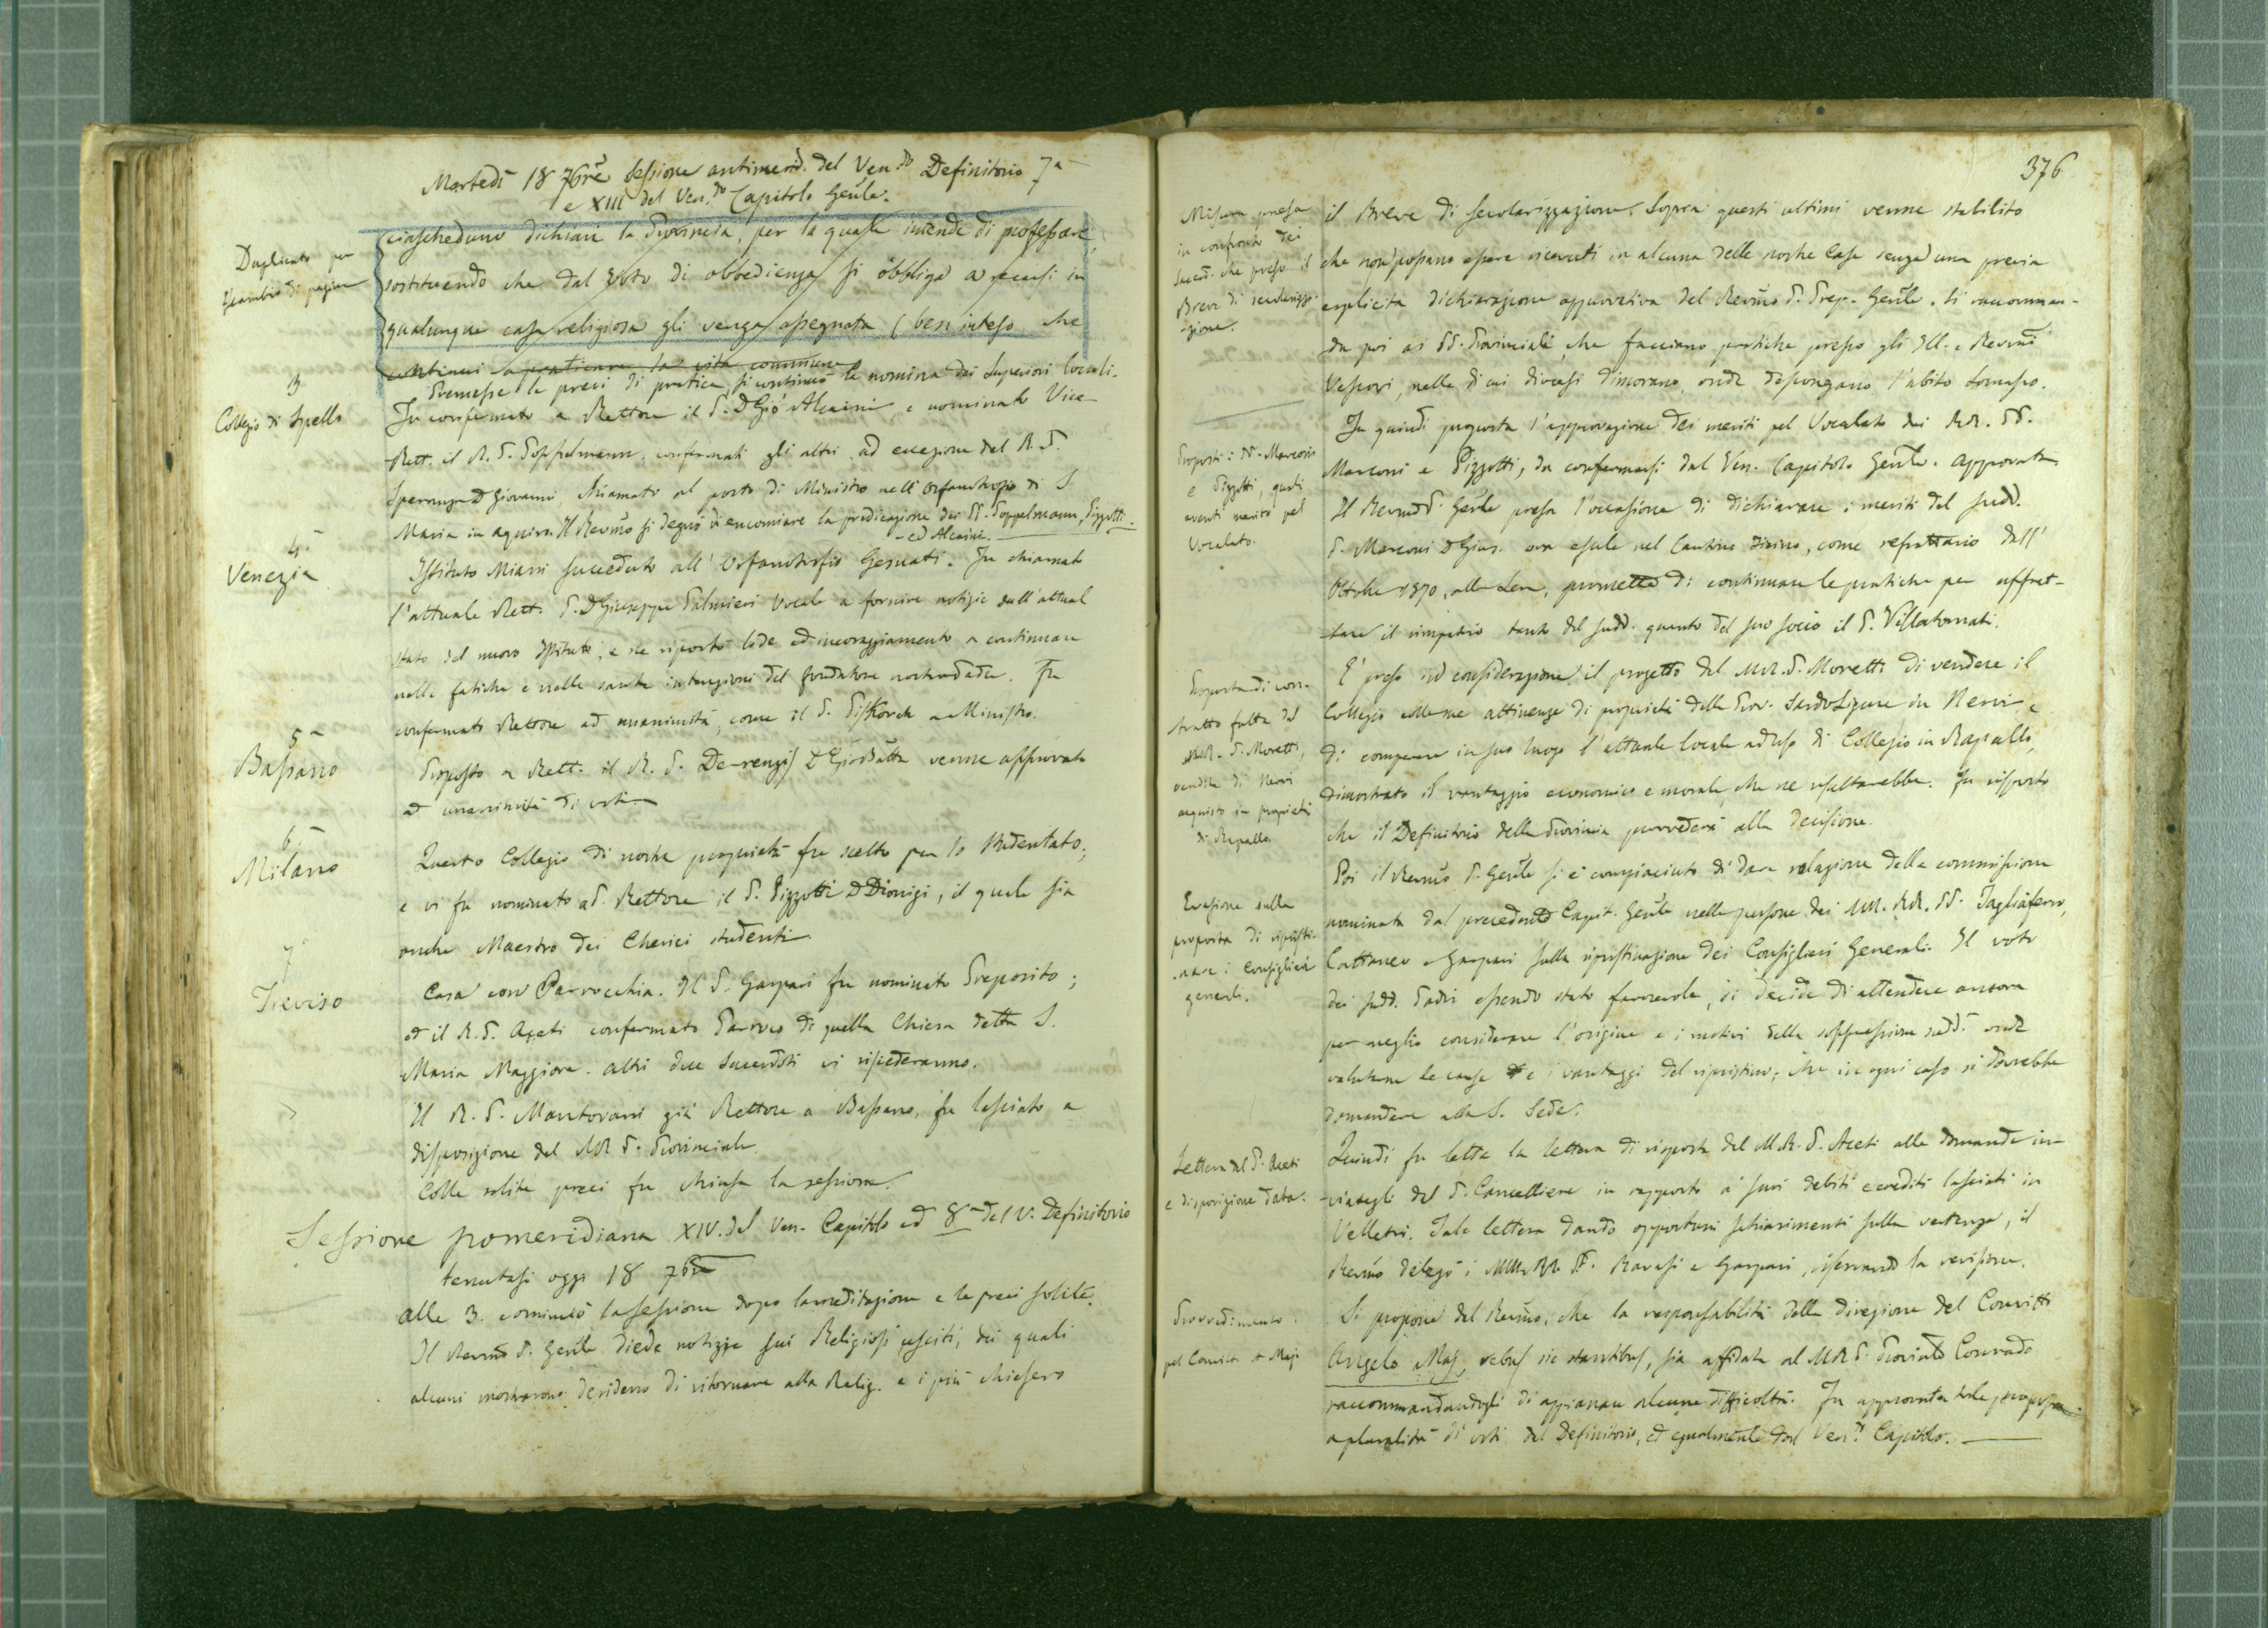 Martedì 18 7bre Sessione antimerid. del Ven.do Definitorio 7a
e XIII del Ven.do Capitolo Genle.
Duplicato per
iscambio di pagine
ciascheduno dichiari la Provincia, per la quale intende di professare,
sostituendo che dal voto di obbedienza si obbliga a recarsi in
qualunque casa religiosa gli venga assegnata (ben inteso che
continui a praticare la vita commune
Premesse le preci di pratica, si continuò la nomina dei Superiori locali.
3
Collegio di Spello
Fu confermato a Rettore il P. D Gio Alcaini e nominato Vice-
Rett. il R. P. Poppelmann, confermati gli altri ad eccezione del R. P.
Speranza D Giovanni, chiamato al posto di Ministro nell'Orfanotrofio di S.
Maria in aquiro. Il Revmo si degnò di encomiare la predicazione dei PP. Poppelmann, Pizzotti
ed Alcaini.
4a
Venezia
Istituto Miani succeduto all'Orfanotrofio Gesuati. Fu chiamato
l'attuale Rett. P. D Giuseppe Palmieri Vocale a fornire notizie dell'attual
stato del nuovo Istituto, e ne riportò lode ed incoraggiamento a continuare
nelle fatiche e nelle sante intenzioni del fondatore. Fu
confermato Rettore ad unanimità, come il P. a Ministro.
5a
Bassano
Proposto a Rett. il R. P. De-renzis D GioBatta venne approvato
ad unanimità di voti.
6
Milano
Questo Collegio di nostra proprietà fu scelto per lo Studentato;
e vi fu nominato a P. Rettore il P. Pizzotti D Dionigi, il quale sia
anche Maestro dei Cherici studenti.
7
Treviso
Casa con Parrocchia. Il P. Gaspari fu nominato Preposito;
ed il R. P. Aceti confermato Parroco di quella Chiesa detta S.
Maria Maggiore. altri due Sacerdoti vi risiederanno.
Il R. P. Mantovani già Rettore a Bassano, fu lasciato a
disposizione del MR P. Provinciale.
Colle solite preci fu chiusa la sessione.
Sessione pomeridiana XIV. del Ven. Capitolo ed 8a del V. Definitorio
tenutasi oggi 18 7bre
alle 3. cominciò la sessione dopo la meditazione e le preci solite.
Il Revmo P. Genle diede notizie sui Religiosi usciti, dei quali
alcuni mostrarono desiderio di ritornare alla Relig. e i più chiesero
376
Misura presa
in confronto dei
Sacerd. che preso il
Breve di secolarizza-
zione.
il Breve di secolarizzazione. Sopra questi ultimi venne stabilito
che non possano essere ricevuti in alcuna delle nostre Case senza una previa
esplicita dichiarazione approvativa del Revmo P. Prep. Genle. Si raccoman-
da poi ai PP. Provinciali che facciano pratiche presso gli Ill. e Revmi
Vescovi, nelle di cui diocesi dimorano, onde depongano l'abito Somasco.
Proposti i PP. Marconi
e Pizzotti, quali
aventi merito pel
Vocalato.
Fu quindi proposta l'approvazione dei meriti pel Vocalato dei RR. PP.
Marconi e Pizzotti, da confermarsi dal Ven. Capitolo Genle. Approvata.
Il Revmo P. Genle prese l'occasione di dichiarare i meriti del sudd.
P. Marconi D Gius. ora esule nel Cantone Ticino, come refrattario dall'
Ottobre 1870, alla Leva, promette di continuare le pratiche per affret-
tare il rimpatrio tanto del sudd. quanto del suo socio il P. Villatornati.
Proposta di con-
tratto fatta dal
MR. P. Moretti,
vendita di Nervi
acquisto in proprietà
di Rapallo.
È preso in considerazione il progetto del M.R. P. Moretti di vendere il
Collegio colle sue attinenze di proprietà della Prov. SardoLigure in Nervi e
di comperare in suo luogo l'attuale locale ad uso di Collegio in Rapallo,
dimostrato il vantaggio economico e morale, che ne risulterebbe. Fu risposto
che il Definitorio della Provincia provvederà alla decisione.
Evasione sulla
proposta di ripristi-
nare i Consiglieri
generali.
Poi il Revmo P. Genle si è compiaciuto di dare relazione della commissione
nominata dal precedente Capit. Genle nelle persone dei MM. RR. PP. Tagliaferro,
Cattaneo e Gaspari sulla ripristinazione dei Consiglieri Generali. Il voto
dei sudd. Padri essendo stato favorevole, si decide di attendere ancora
per meglio considerare l'origine e i motivi della soppressione sudd. onde
valutare le cause e i vantaggi del ripristino; che in ogni caso si dovrebbe
domandare alla S. Sede.
Lettera del P. Aceti
e disposizione data.
Quindi fu letta la lettera di risposta del M.R. P. Aceti alle domande in-
viategli dal P. Cancelliere in rapporto a' suoi debiti e crediti lasciati in
Velletri. Tale lettera dando opportuni schiarimenti sulla vertenza, il
Revmo delegò i MM. RR. PP. Ravasi e Gaspari, riservando la revisione.
Provvedimento
pel Convitto A Maj
Si propone dal Revmo, che la responsabilità della direzione del Convitto
Angelo Maj, rebus sic stantibus, sia affidata al MR P. Provinle Conrado
raccomandandogli di appianare alcune difficoltà. Fu approvata tale proposta
a pluralità di voti dal Definitorio, ed egualmente dal Ven.do Capitolo.